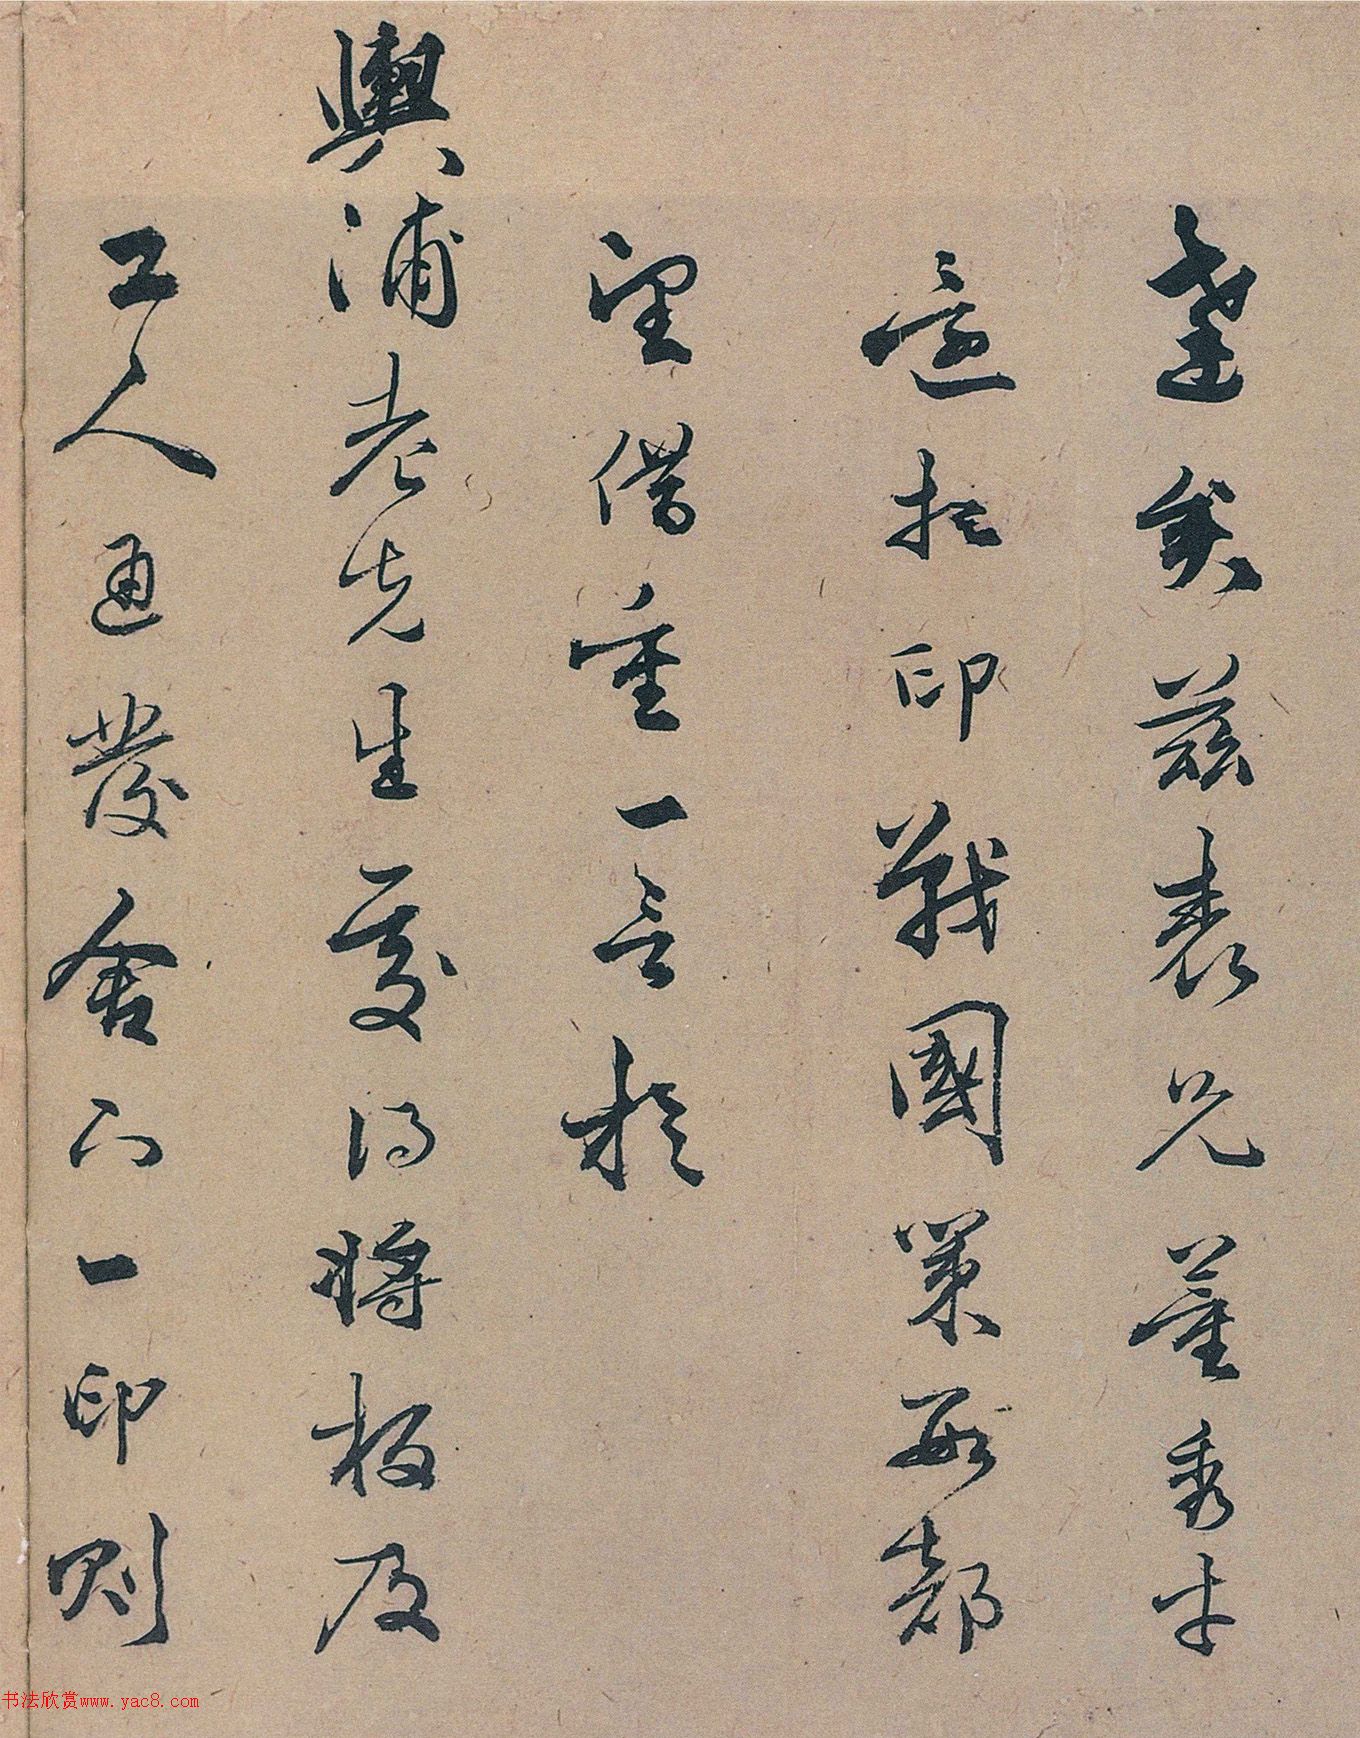 矣茲表兄董秀才
意拉印戰國策數部
望借重一言於
輿浦老先生處得將板及
工人通發舍下一印則
书法欣赏www.yac8.com